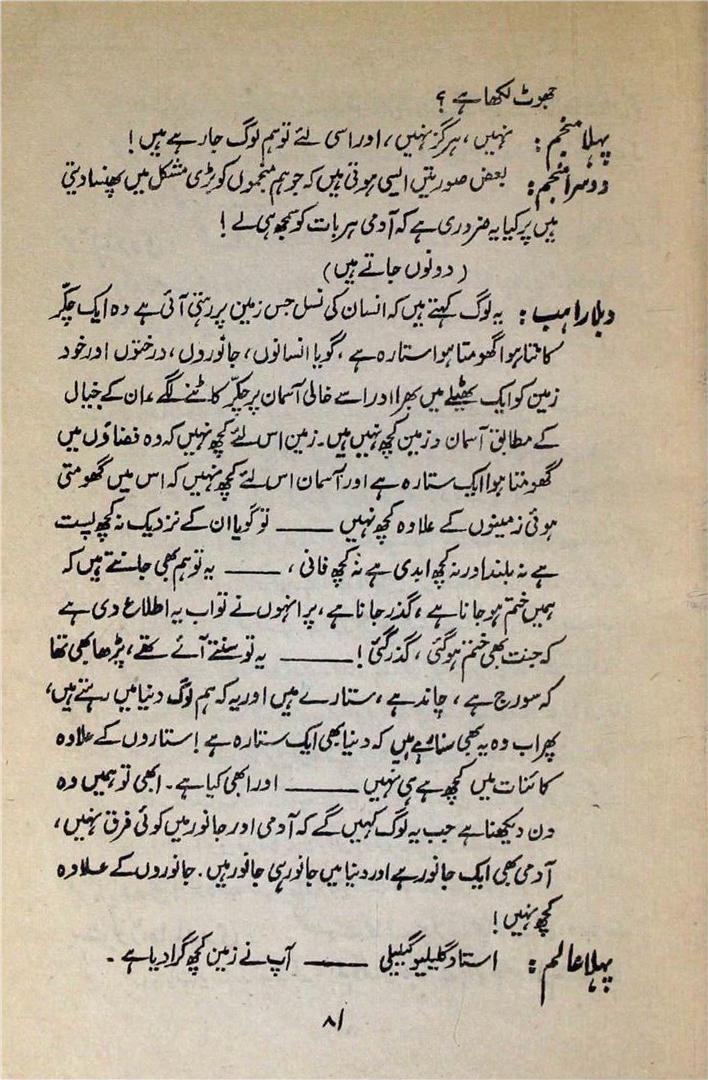 جھوٹ لکھا ہے ؟
پہلا منجم : نہیں ، ہرگز نہیں ، اور اسی لئے تو ہم لوگ جا رہے ہیں !
دوسرا منجم : بعض صورتیں ایسی ہوتی ہیں کہ جو ہم منجموں کو بڑی مشکل میں پھنسا دیتی
ہیں پر کیا یہ ضروری ہے کہ آدمی ہر بات کو سمجھ ہی لے !
( دونوں جاتے ہیں )
دبلا راہب : یہ لوگ کہتے ہیں کہ انسان کی نسل جس زمین پر رہتی آئی ہے وہ ایک چکّر
کاٹتا ہوا گھومتا ہوا ستارہ ہے ، گویا انسانوں ، جانوروں ، درختوں اور خود
زمین کو ایک تھیلے میں بھرا اور اسے خالی آسمان پر چکّر کاٹنے لگے ـ ان کے خیال
کے مطابق آسمان و زمین کچھ نہیں ہیں۔ زمین اس لئے کچھ نہیں کہ وہ فضاؤں میں
گھومتا ہوا ایک ستارہ ہے اور آسمان اس لئے کچھ نہیں کہ اس میں گھومتی
ہوئی زمینوں کے علاوہ کچھ نہیں ــــــ تو گویا ان کے نزدیک نہ کچھ پست
ہے نہ بلند اور نہ کچھ ابدی ہے نہ کچھ فانی ، ــــــ یہ تو ہم بھی جانتے ہیں کہ
ہمیں ختم ہو جانا ہے ، گذر جانا ہے ، پر انہوں نے تو اب یہ اطلاع دی ہے
کہ جنت بھی ختم ہو گئی ، گذر گئی ! ــــــ یہ تو سنتے آئے تھے ، پڑھا بھی تھا
کہ سورج ہے ، چاند ہے ، ستارے ہیں اور یہ کہ ہم لوگ دنیا میں رہتے ہیں،
پھر اب وہ یہ بھی سنا رہے ہیں کہ دنیا بھی ایک ستارہ ہے ! ستاروں کے علاوہ
کائنات میں کچھ ہے ہی نہیں ــــــ اور ابھی کیا ہے۔ ابھی تو ہمیں وہ
دن دیکھنا ہے جب یہ لوگ کہیں گے کہ آدمی اور جانور میں کوئی فرق نہیں ،
آدمی بھی ایک جانور ہے اور دنیا میں جانور ہی جانور ہیں ۔ جانوروں کے علاوہ
کچھ نہیں !
پہلا عالم : استاد گلیلیو گلیلی ــــــ آپ نے زمین کچھ گرا دیا ہے ۔
۸۱